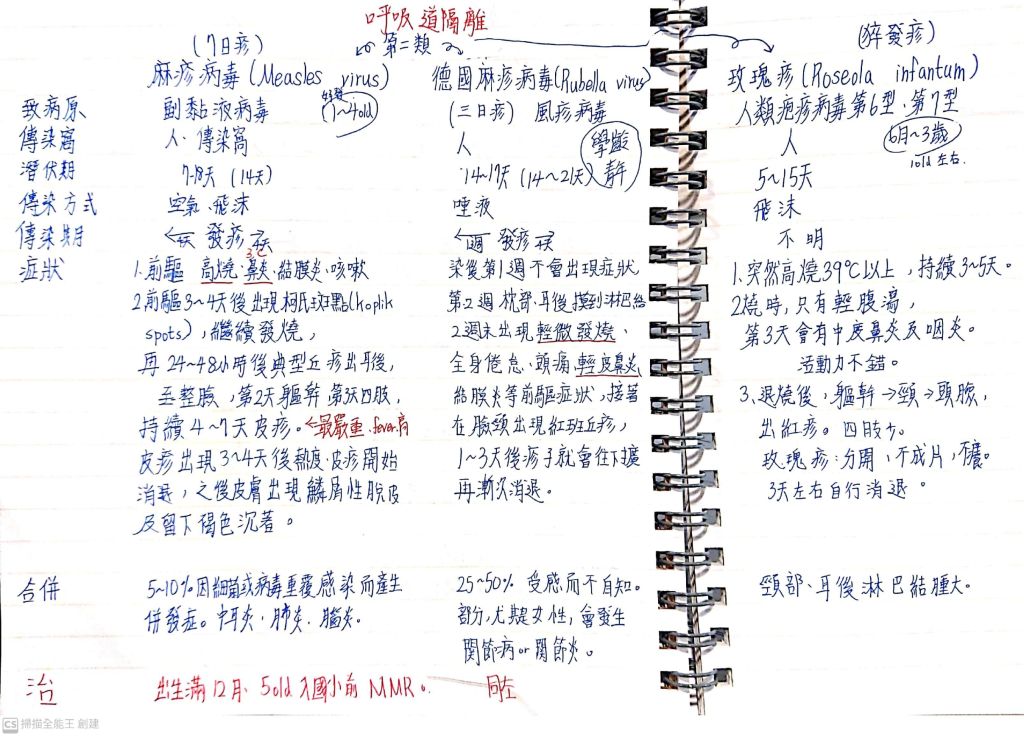 呼吸道隔離
(7日疹)
第二類
(猝發疹)
麻疹病毒(Measles virus)
德國麻疹病毒(Rubella virus)
玫瑰疹(Roseola infantum)
致病原
副黏液病毒
(1~4old)
(三日疹) 風疹病毒
人類疱疹病毒第6型、第7型
傳染窩
人、傳染窩
人
學齡
青年
人
6月~3歲
1old 左右.
潛伏期
7-18天 (14天)
14~17天 (14~21天)
5~15天
傳染方式
空氣、飛沫
唾液
飛沫
傳染期
發疹
週 發疹
不明
症狀
1.前驅 高燒、鼻炎、結膜炎、咳嗽
2.前驅3~4天後出現柯氏斑點(koplik
spots),繼續發燒,
再24~48小時後典型丘疹出耳後,
至整臉,第2天軀幹 第3天四肢,
持續4~7天皮疹。←最嚴重、fever高
皮疹出現3~4天後熱度、皮疹開始
消退,之後皮膚出現鱗屑性脫皮
及留下褐色沉著。
染後第1週不會出現症狀
第2週枕部、耳後摸到淋巴結
2週末出現輕微發燒、
全身倦怠、頭痛、輕度鼻炎
結膜炎等前驅症狀,接著
在臉頭出現紅斑丘疹,
1~3天後疹子就會往下擴
再漸次消退。
1.突然高燒39℃以上,持續3~5天。
2燒時,只有輕腹瀉,
第3天會有中度鼻炎及咽炎。
活動力不錯。
3、退燒後,軀幹→頸→頭臉,
出紅疹。四肢少。
玫瑰疹:分開、不成片,不癢。
3天左右自行消退。
合併
5~10%因細菌或病毒重覆感染而產生
併發症。中耳炎、肺炎、腦炎。
25~50% 受感而不自知。
部分,尤其女性,會發生
關節病or關節炎。
頸部、耳後淋巴結腫大。
治
出生滿12月、5old入國小前 MMR。
同左
CS 掃描全能王 創建